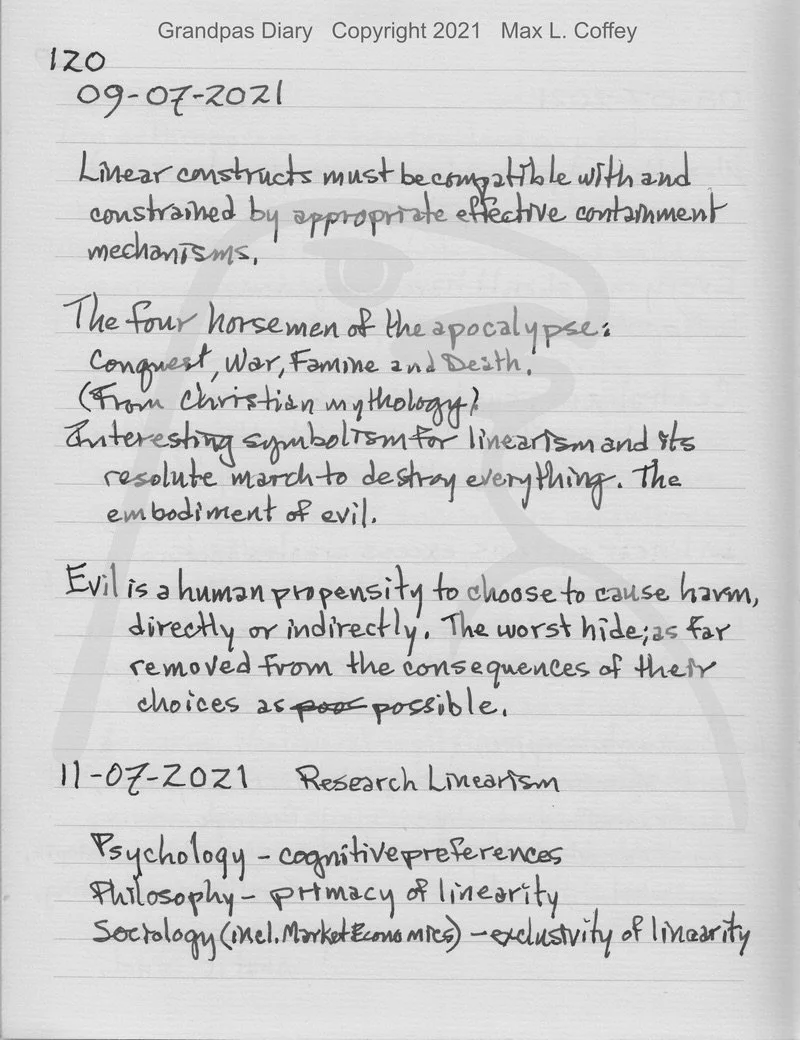 Grandpas Diary Copyright 2021 Max L. Coffey
120
09-07-2021
Linear constructs must be compatible with and
constrained by appropriate effective containment
mechanisms.
The four horsemen of the apocalypse:
Conquest, War, Famine and Death.
(From Christian mythology)
Interesting symbolism for linearism and its
resolute march to destroy everything. The
embodiment of evil.
Evil is a human propensity to choose to cause harm,
directly or indirectly. The worst hide; as far
removed from the consequences of their
choices as poss possible.
11-07-2021 Research Linearism
Psychology - cognitive preferences
Philosophy - primacy of linearity
Sociology (incl. Market Economics) - exclusivity of linearity